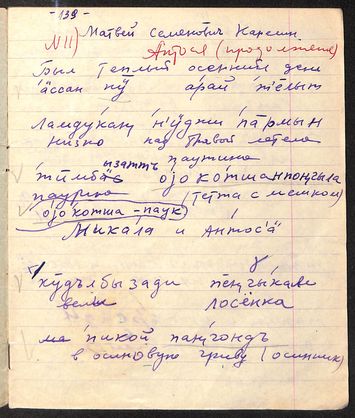 - 139 -
N 11) Матвей Семенович Карелин
Антося (продолжение)
Был теплый осенний день
ӓссан нӱ арай телып
Ламдукаӊ нӱдин пармын
низко над травой летела
паутина
тимба ызатъ ојокотша нпоӊгыла
паурино (тетта с мешком)
ојокотша - паук
Микала и Антосӓ
кӱдълбызади пеӊгыкаве
вели лосёнка
ма пикой паӊгондъ
в осиновую гриву (осинник)